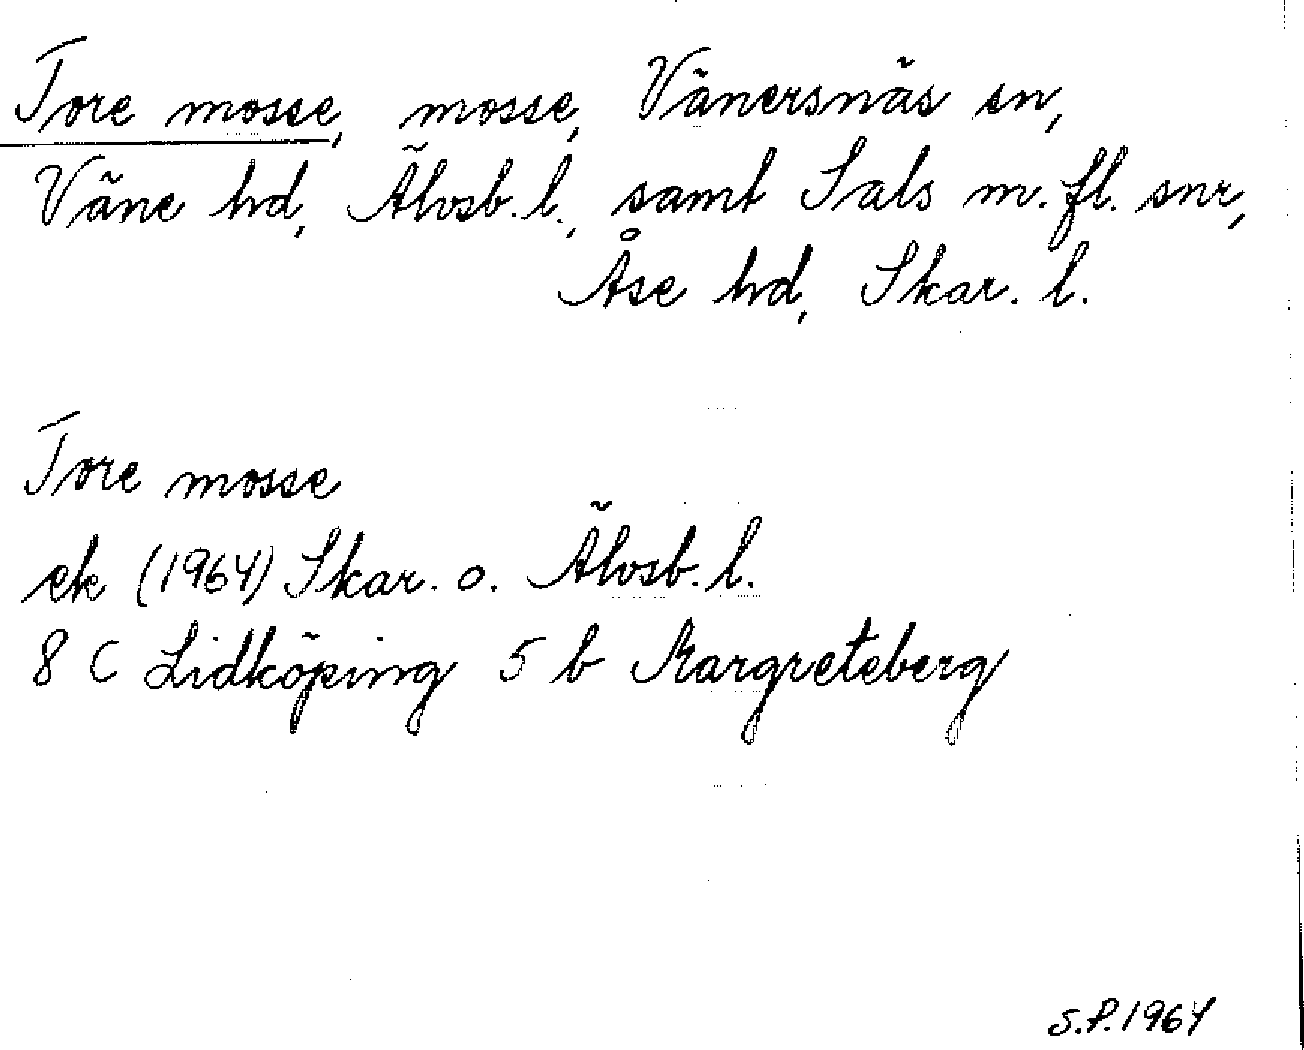 Tore mosse, mosse, Vänersnäs sn,
Väne hd, Älvsb. l., samt Sals m. fl. snr,
Åse hd, Skar. l.
Tore mosse
ek (1964) Skar. o. Älvsb. l.
8 C Lidköping 5 b Margreteberg
S.P. 1964